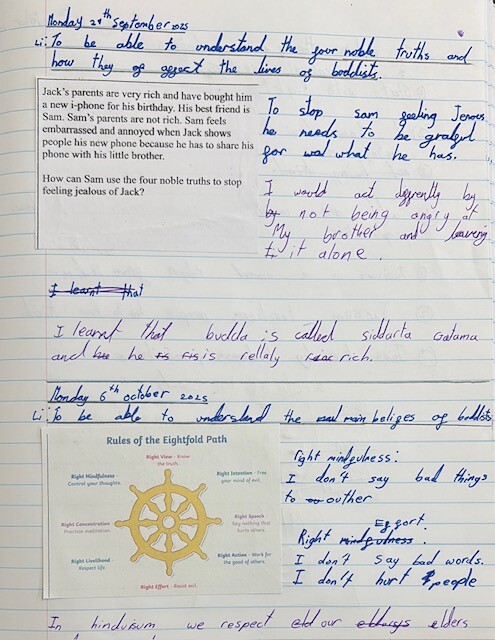 Monday 29th September 2025
Li: To be able to understand the four noble truths and
how they of affect the lives of boddists.
Jack's parents are very rich and have bought him
a new i-phone for his birthday. His best friend is
Sam. Sam's parents are not rich. Sam feels
embarrassed and annoyed when Jack shows
people his new phone because he has to share his
phone with his little brother.
How can Sam use the four noble truths to stop
feeling jealous of Jack?
To stop sam feeling Jenous
he needs to be grateful
for wat what he has.
I would act dffrently by
by not being angry at
My brother and leaving
it alone.
I learnt that
I learnt that budda is called siddarta Gatama
and he is rellaly rich.
Monday 6th october 2025
Li: To be able to understand the main beliges of boddists
Rules of the Eightfold Path
Right View - Know
the truth.
Right Mindfulness -
Control your thoughts.
Right Intention - Free
your mind of evil.
Right Concentration
Practise meditation.
Right Speech -
Say nothing that
hurts others.
Right Livelihood -
Respect life.
Right Action - Work for
the good of others.
Right Effort - Resist evil.
right mindfulness:
I don't say bad things
to outher
Right mindfulness: Effort.
I don't say bad words.
I don't hurt people
In hinduisum we respect our elders